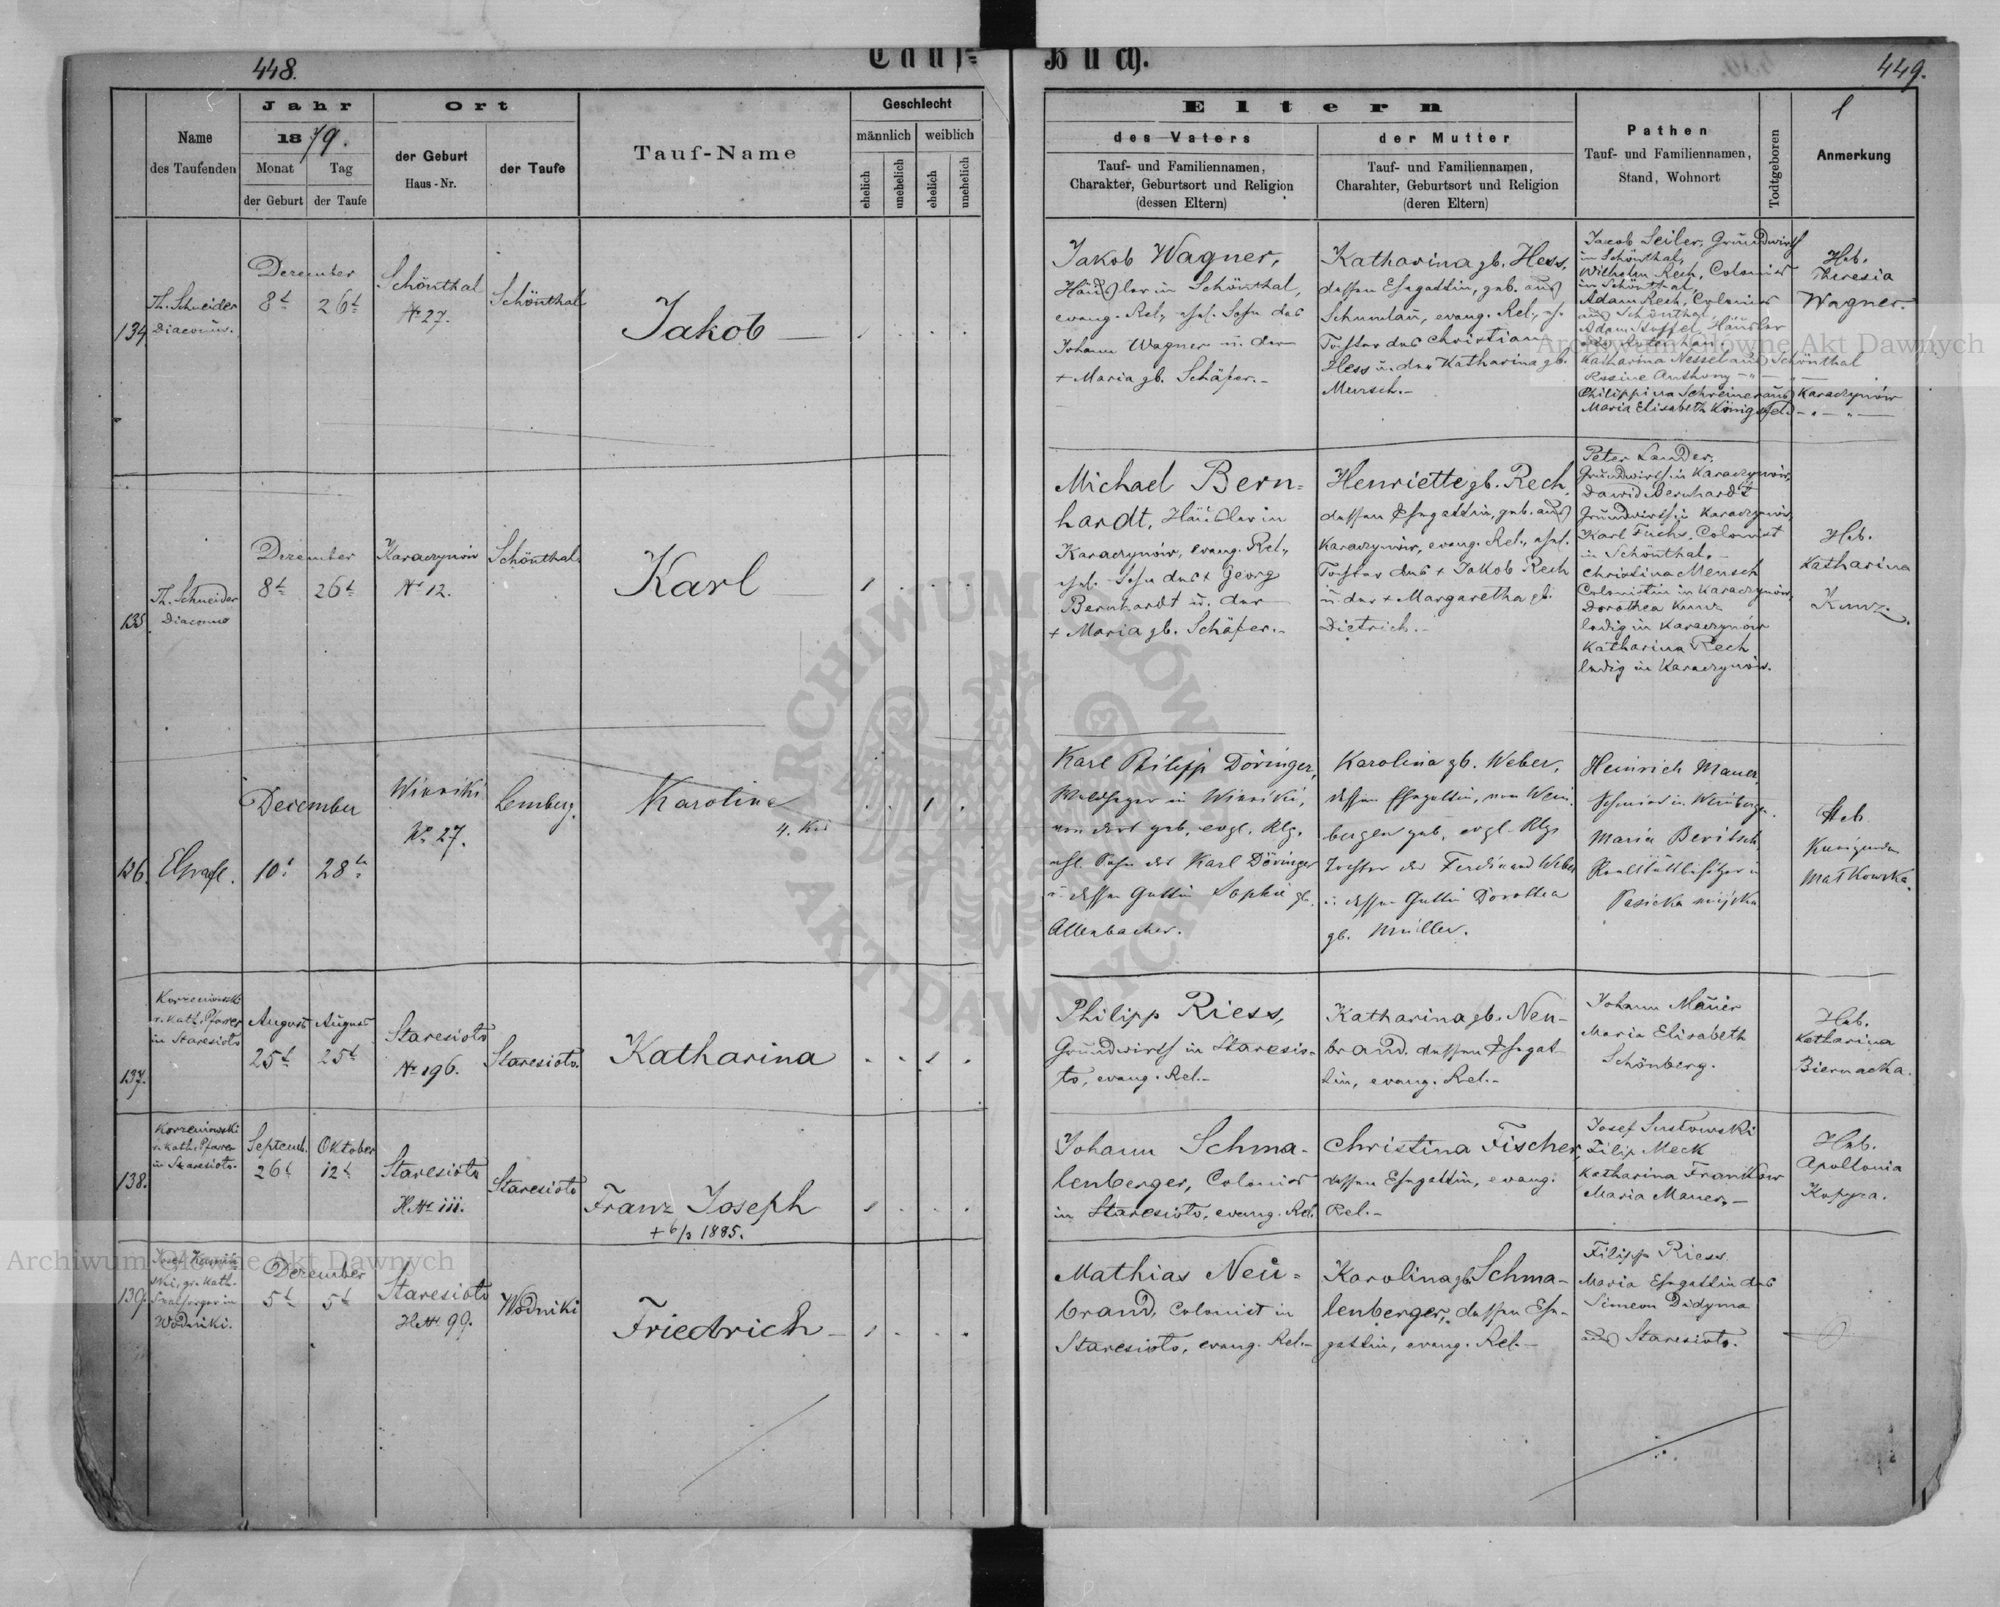 448.
Tauf=
Buch.
449.
Name
des Taufenden
Jahr
1879.
Monat
Tag
der Geburt
der Taufe
Ort
der Geburt
Haus-Nr.
der Taufe
Tauf-Name
Geschlecht
männlich
weiblich
ehelich
unehelich
ehelich
unehelich
Eltern
des Vaters
Tauf- und Familiennamen,
Charakter, Geburtsort und Religion
(dessen Eltern)
der Mutter
Tauf- und Familiennamen,
Charahter, Geburtsort und Religion
(deren Eltern)
Pathen
Tauf- und Familiennamen,
Stand, Wohnort
Todtgeboren
Anmerkung
134
Th. Schneider
Diaconus.
December
8t
26t
Schönthal
No 27.
Schönthal
Jakob
Jakob Wagner,
Häusler in Schönthal,
evang. Rel., ehel. Sohn des
Johann Wagner u. der
+ Maria gb. Schäfer.-
Katharina gb. Hess,
dessen Ehegattin, geb. aus
Schumlau, evang. Rel., eh.
Tochter des Christian
Hess u. der Katharina gb.
Mensch.-
Jacob Seiler, Grundwirth
in Schönthal,
Wilhelm Rech, Colonist
in Schönthal,
Adam Rech, Colonist
aus Schönthal,
Adam Stoffel, Häusler
Katharina Nessel aus Schönthal
Rosine Anthony - " -
Philippina Schreiner aus Karaczynów
Maria Elisabeth Königsfel. - " -
Heb.
Theresia
Wagner.
135
Th. Schneider
Diaconus
December
8t
26t
Karaczynów
No 12.
Schönthal
Karl
Michael Bern=
hardt, Häusler in
Karaczynów, evang. Rel.,
ehel. Sohn des + Georg
Bernhardt u. der
+ Maria gb. Schäfer.-
Henriette gb. Rech,
dessen Ehegattin, geb. aus
Karaczynów, evang. Rel., ehel.
Tochter des + Jakob Rech
u. der + Margaretha gb.
Dietrich.-
Peter Lander,
Grundwirth in Karaczynów,
David Bernhardt
Grundwirth in Karaczynów,
Karl Fuchs, Colonist
in Schönthal.-
Christina Mensch
Colonistin in Karaczynów.
Dorothea Kunz
ledig in Karaczynów
Katharina Rech
ledig in Karaczynów.
Heb.
Katharina
Kunz.
136.
December
10t
28t
Winniki
No 27.
Lemberg.
Karoline
Karl Philipp Döringer,
Waldheger in Winniki,
von dort geb. evgl. Rlg.
ehl. Sohn des Karl Döringer
u. dessen Gattin Sophie gb.
Allenbacher.
Karolina gb. Weber,
dessen Ehegattin, von Wein-
bergen geb. evgl. Rlg.
Tochter des Ferdinand Weber
u. dessen Gattin Dorothea
gb. Müller.
Heinrich Mauer,
Schmied in Weinbergen.
Maria Beritsch
Realitätbesitzer in
Pasieka miejska
Heb.
Kunigunda
Matkowska.
137.
Korzeniowski
r. kath. Pfarrer
in Staresioło
August
25t
August
25t
Staresioło
No 196.
Staresioło.
Katharina
Philipp Riess,
Grundwirth in Staresio-
ło, evang. Rel.-
Katharina gb. Neu-
brand, dessen Ehegat-
tin, evang. Rel.-
Johann Mauer
Maria Elisabeth
Schönberg.
Heb.
Katharina
Biernacka.
138.
Korzeniowski
r. kath. Pfarrer
in Staresioło.
Septemb.
26t
Oktober
12t
Staresioło
H.No 111.
Staresioło
Franz Joseph
+ 6/3 1885.
Johann Schma-
lenberger, Colonist
in Staresioło, evang. Rel.
Christina Fischer,
dessen Ehegattin, evang.
Rel.-
Josef Susłowski
Filip Meck
Katharina Frankow
Maria Mauer.-
Heb.
Apollonia
Kopyra.
139.
Josef Kamiń-
ski, gr. kath.
Seelsorger in
Wodniki.
December
5t
5t
Staresioło
H.No 99.
Wodniki
Friedrich
Mathias Neu-
brand, Colonist in
Staresioło, evang. Rel.-
Karolina gb. Schma-
lenberger, dessen Ehe-
gattin, evang. Rel.-
Filipp Riess
Maria Ehegattin des
Simeon Didyma
aus Staresioło.
Archiwum Główne Akt Dawnych
Archiwum Główne Akt Dawnych
ARCHIWUM GŁÓWNE
AKT DAWNYCH